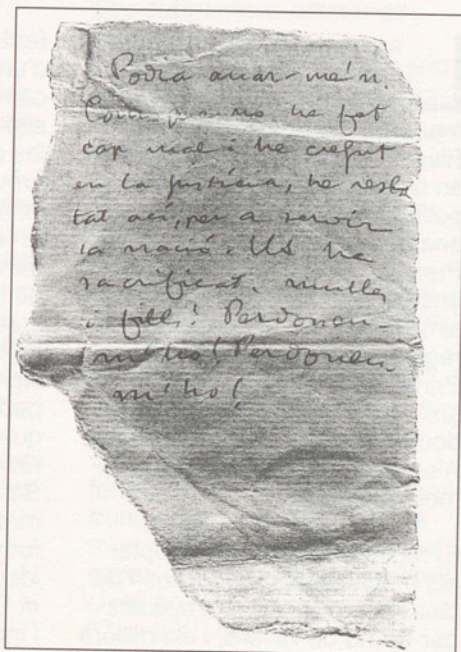 Podia anar-me'n.
Com no he fet
cap mal i he cregut
en la justícia, he res-
tat ací, per a servir
la nació. Us he
sacrificat, muller
i fills! Perdoneu-
m'ho! Perdoneu-
m'ho!